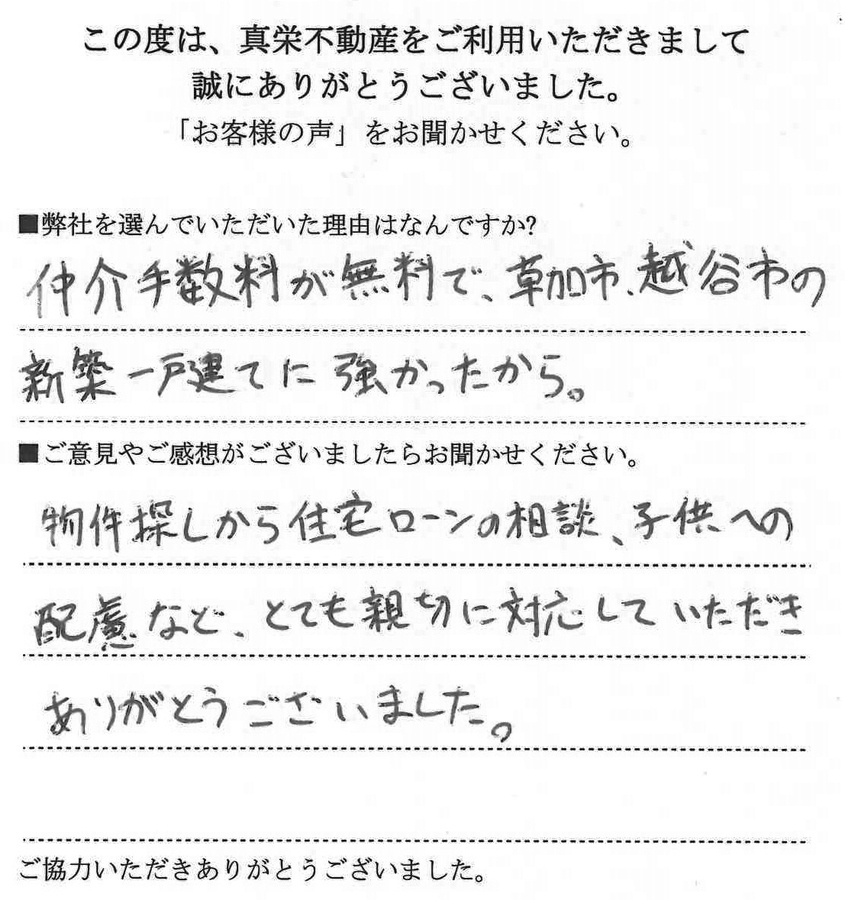 この度は、真栄不動産をご利用いただきまして
誠にありがとうございました。
「お客様の声」をお聞かせください。
■弊社を選んでいただいた理由はなんですか?
仲介手数料が無料で、草加市、越谷市の
新築一戸建てに強かったから。
■ご意見やご感想がございましたらお聞かせください。
物件探しから住宅ローンの相談、子供への
配慮など、とても親切に対応していただき
ありがとうございました。
ご協力いただきありがとうございました。